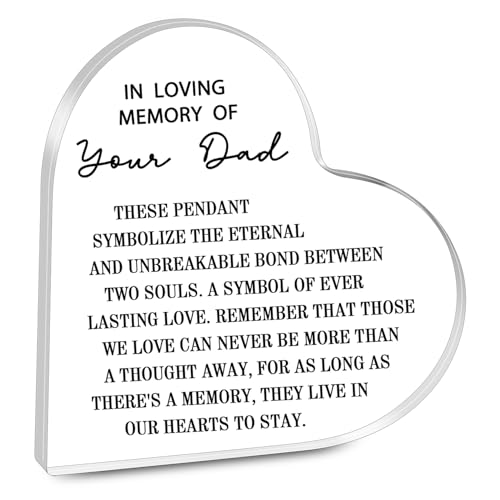 IN LOVING
MEMORY OF
Your Dad
THESE PENDANT
SYMBOLIZE THE ETERNAL
AND UNBREAKABLE BOND BETWEEN
TWO SOULS. A SYMBOL OF EVER
LASTING LOVE. REMEMBER THAT THOSE
WE LOVE CAN NEVER BE MORE THAN
A THOUGHT AWAY, FOR AS LONG AS
THERE'S A MEMORY, THEY LIVE IN
OUR HEARTS TO STAY.